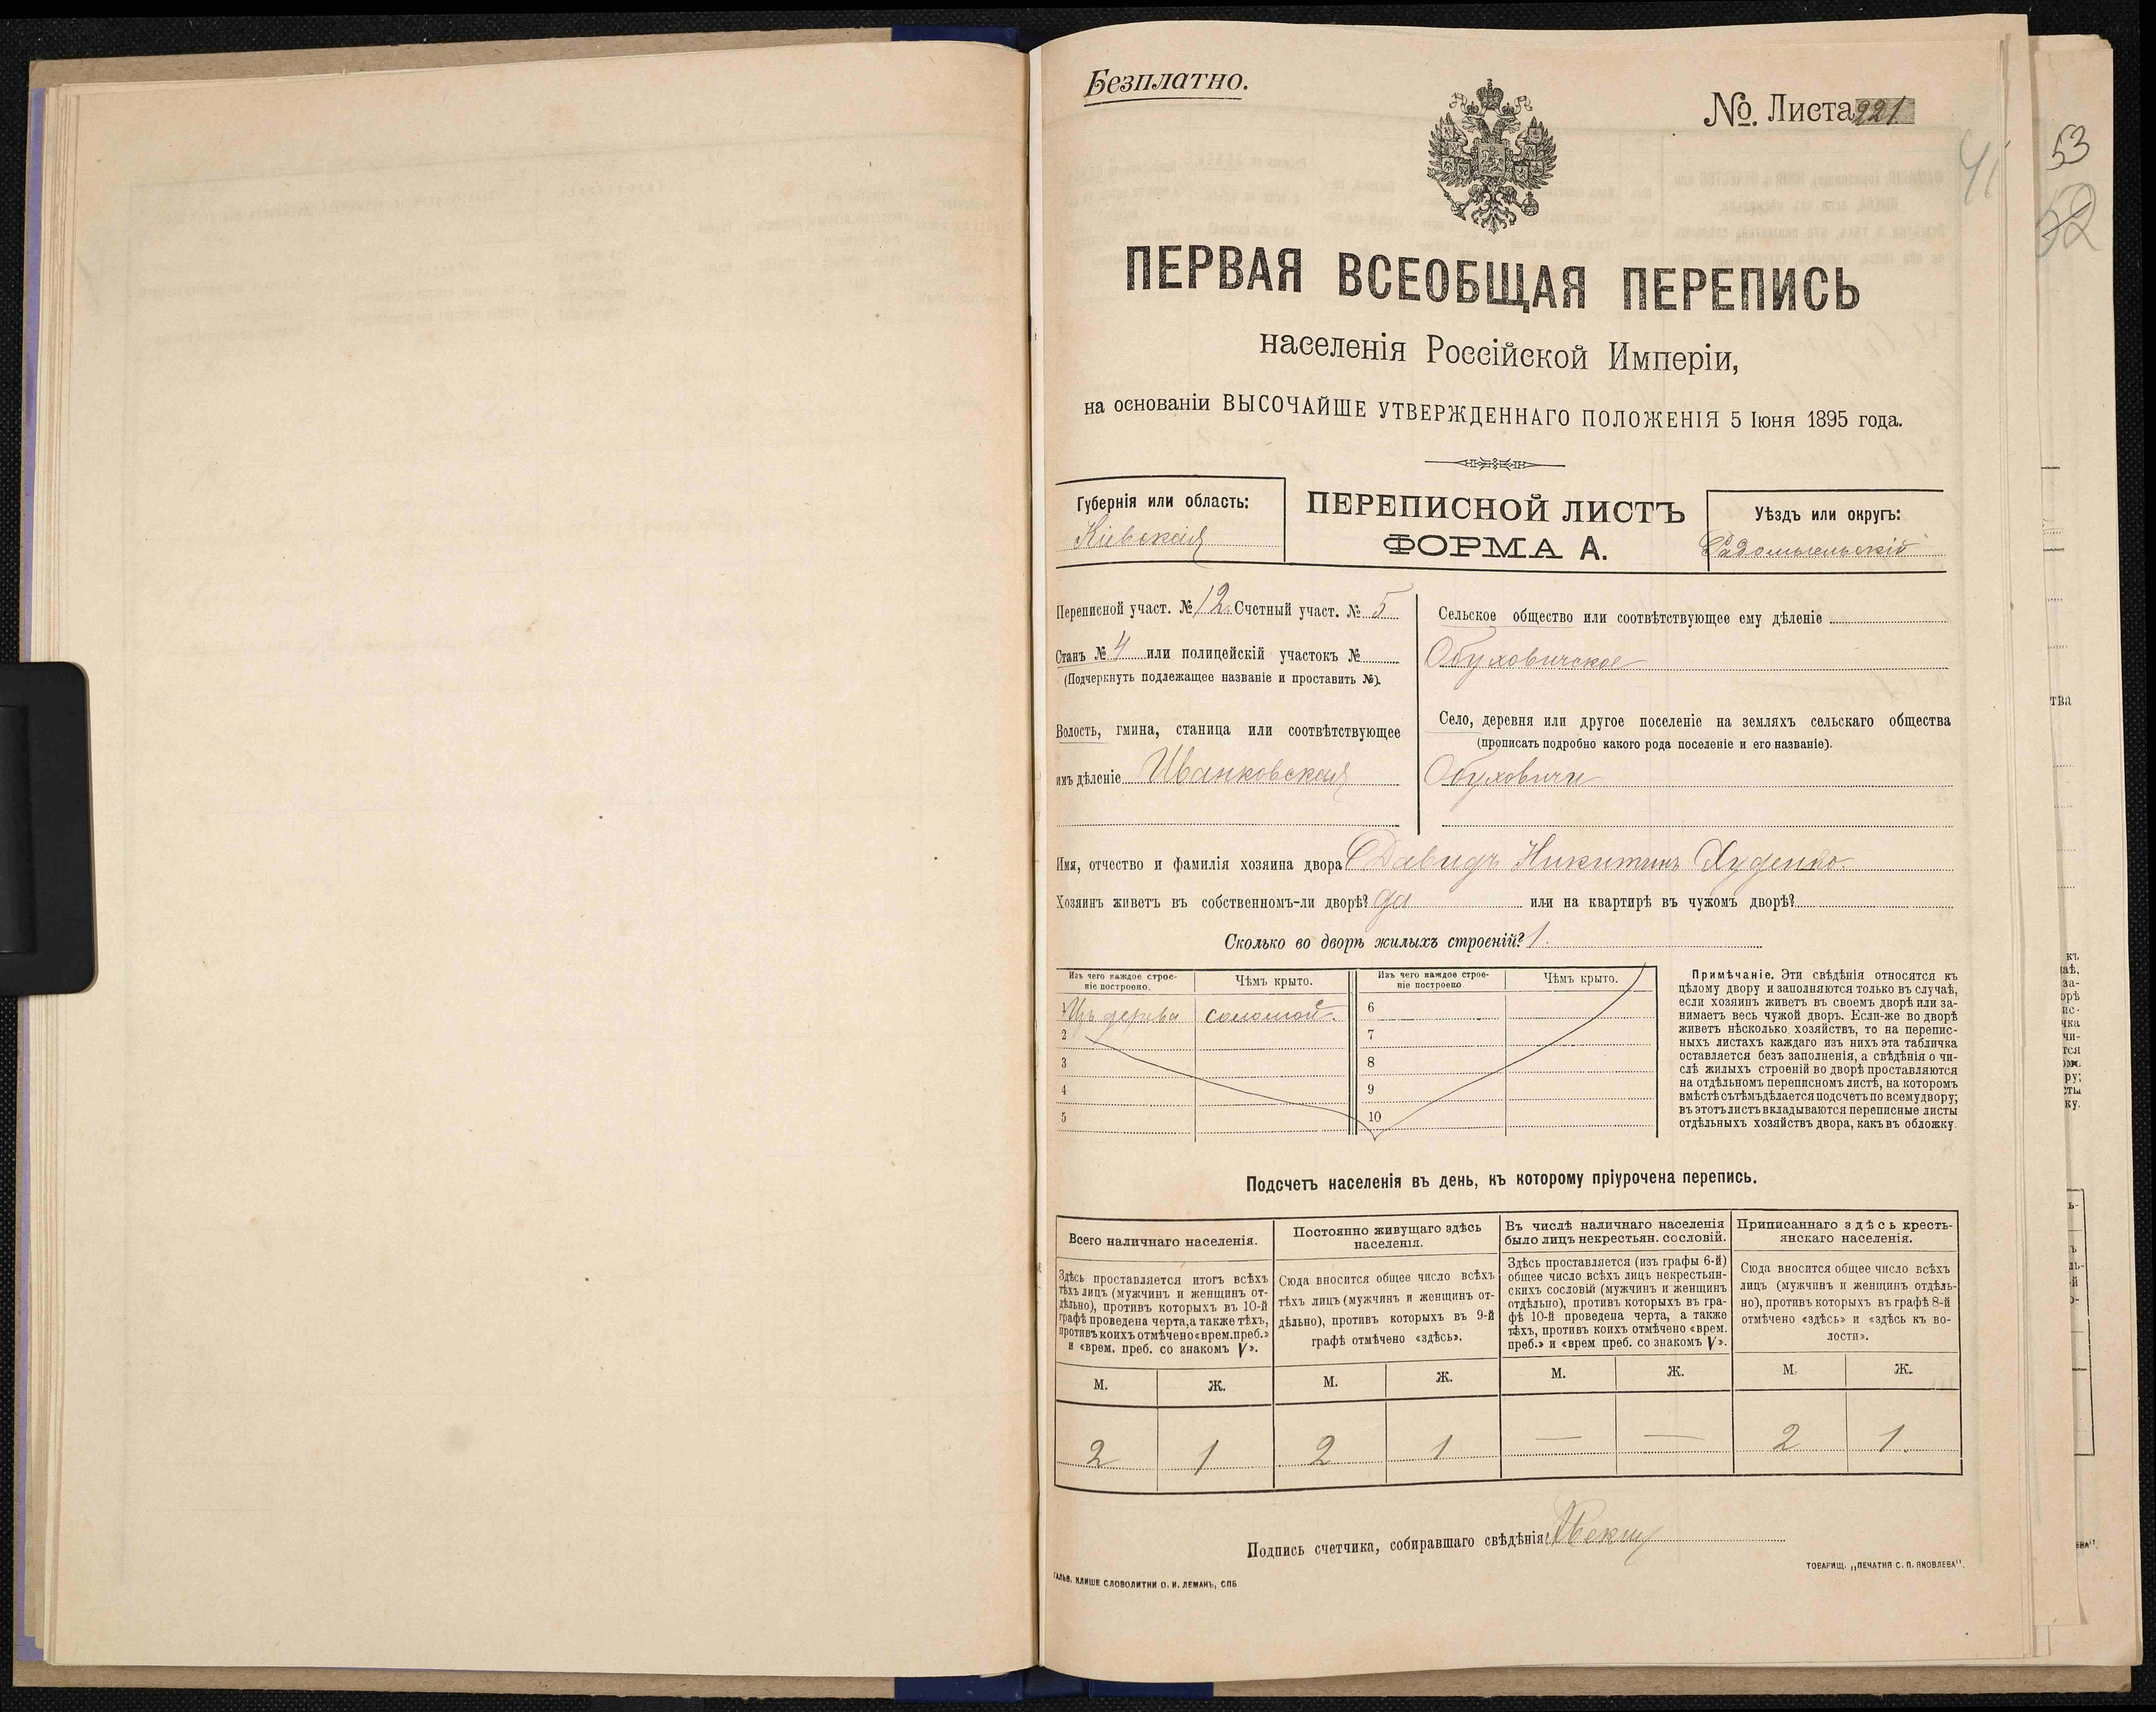 Безплатно.
№. Листа 221.
41
53
62
ПЕРВАЯ ВСЕОБЩАЯ ПЕРЕПИСЬ
населенія Россійской Имперіи,
на основаніи ВЫСОЧАЙШЕ УТВЕРЖДЕННАГО ПОЛОЖЕНІЯ 5 Іюня 1895 года.
Губернія или область:
Кіевская
ПЕРЕПИСНОЙ ЛИСТЪ
ФОРМА А.
Уѣздъ или округъ:
Радомысльскій
Переписной участ. № 12. Счетный участ. № 5
Станъ № 4 или полицейскій участокъ №
(Подчеркнуть подлежащее названіе и проставить №).
Волость, гмина, станица или соотвѣтствующее
имъ дѣленіе Иванковская
Сельское общество или соотвѣтствующее ему дѣленіе
Обуховичское
Село, деревня или другое поселеніе на земляхъ сельскаго общества
(прописать подробно какого рода поселеніе и его названіе).
Обуховичи
Имя, отчество и фамилія хозяина двора Давидъ Никитинъ Худенко.
Хозяинъ живетъ въ собственномъ-ли дворѣ? да или на квартирѣ въ чужомъ дворѣ?
Сколько во дворѣ жилыхъ строеній? 1.
Изъ чего каждое строе-
ніе построено.
Чѣмъ крыто.
Изъ чего каждое строе-
ніе построено
Чѣмъ крыто.
1 Изъ дерева соломой. 6
2 7
3 8
4 9
5 10
Примѣчаніе. Эти свѣдѣнія относятся къ
цѣлому двору и заполняются только въ случаѣ,
если хозяинъ живетъ въ своемъ дворѣ или за-
нимаетъ весь чужой дворъ. Если-же во дворѣ
живетъ нѣсколько хозяйствъ, то на перепис-
ныхъ листахъ каждаго изъ нихъ эта табличка
оставляется безъ заполненія, а свѣдѣнія о чи-
слѣ жилыхъ строеній во дворѣ проставляются
на отдѣльномъ переписномъ листѣ, на которомъ
вмѣстѣ съ тѣмъ дѣлается подсчетъ по всему двору;
въ этотъ листъ вкладываются переписные листы
отдѣльныхъ хозяйствъ двора, какъ въ обложку.
Подсчетъ населенія въ день, къ которому пріурочена перепись.
Всего наличнаго населенія.
Здѣсь проставляется итогъ всѣхъ
тѣхъ лицъ (мужчинъ и женщинъ от-
дѣльно), противъ которыхъ въ 10-й
графѣ проведена черта, а также тѣхъ,
противъ коихъ отмѣчено «врем. преб.»
и «врем. преб. со знакомъ V».
Постоянно живущаго здѣсь
населенія.
Сюда вносится общее число всѣхъ
тѣхъ лицъ (мужчинъ и женщинъ от-
дѣльно), противъ которыхъ въ 9-й
графѣ отмѣчено «здѣсь».
Въ числѣ наличнаго населенія
было лицъ некрестьян. сословій.
Здѣсь проставляется (изъ графы 6-й)
общее число всѣхъ лицъ некрестьян-
скихъ сословій (мужчинъ и женщинъ
отдѣльно), противъ которыхъ въ гра-
фѣ 10-й проведена черта, а также
тѣхъ, противъ коихъ отмѣчено «врем.
преб.» и «врем преб. со знакомъ V».
Приписаннаго здѣсь кресть-
янскаго населенія.
Сюда вносится общее число всѣхъ
лицъ (мужчинъ и женщинъ отдѣль-
но), противъ которыхъ въ графѣ 8-й
отмѣчено «здѣсь» и «здѣсь къ во-
лости».
М. Ж. М. Ж. М. Ж. М. Ж.
2 1 2 1 — — 2 1.
Подпись счетчика, собиравшаго свѣдѣнія:
ГАЛЬВ. КЛИШЕ СЛОВОЛИТНИ О. И. ЛЕМАНЪ, СПБ
ТОВАРИЩ. „ПЕЧАТНЯ С. П. ЯКОВЛЕВА".